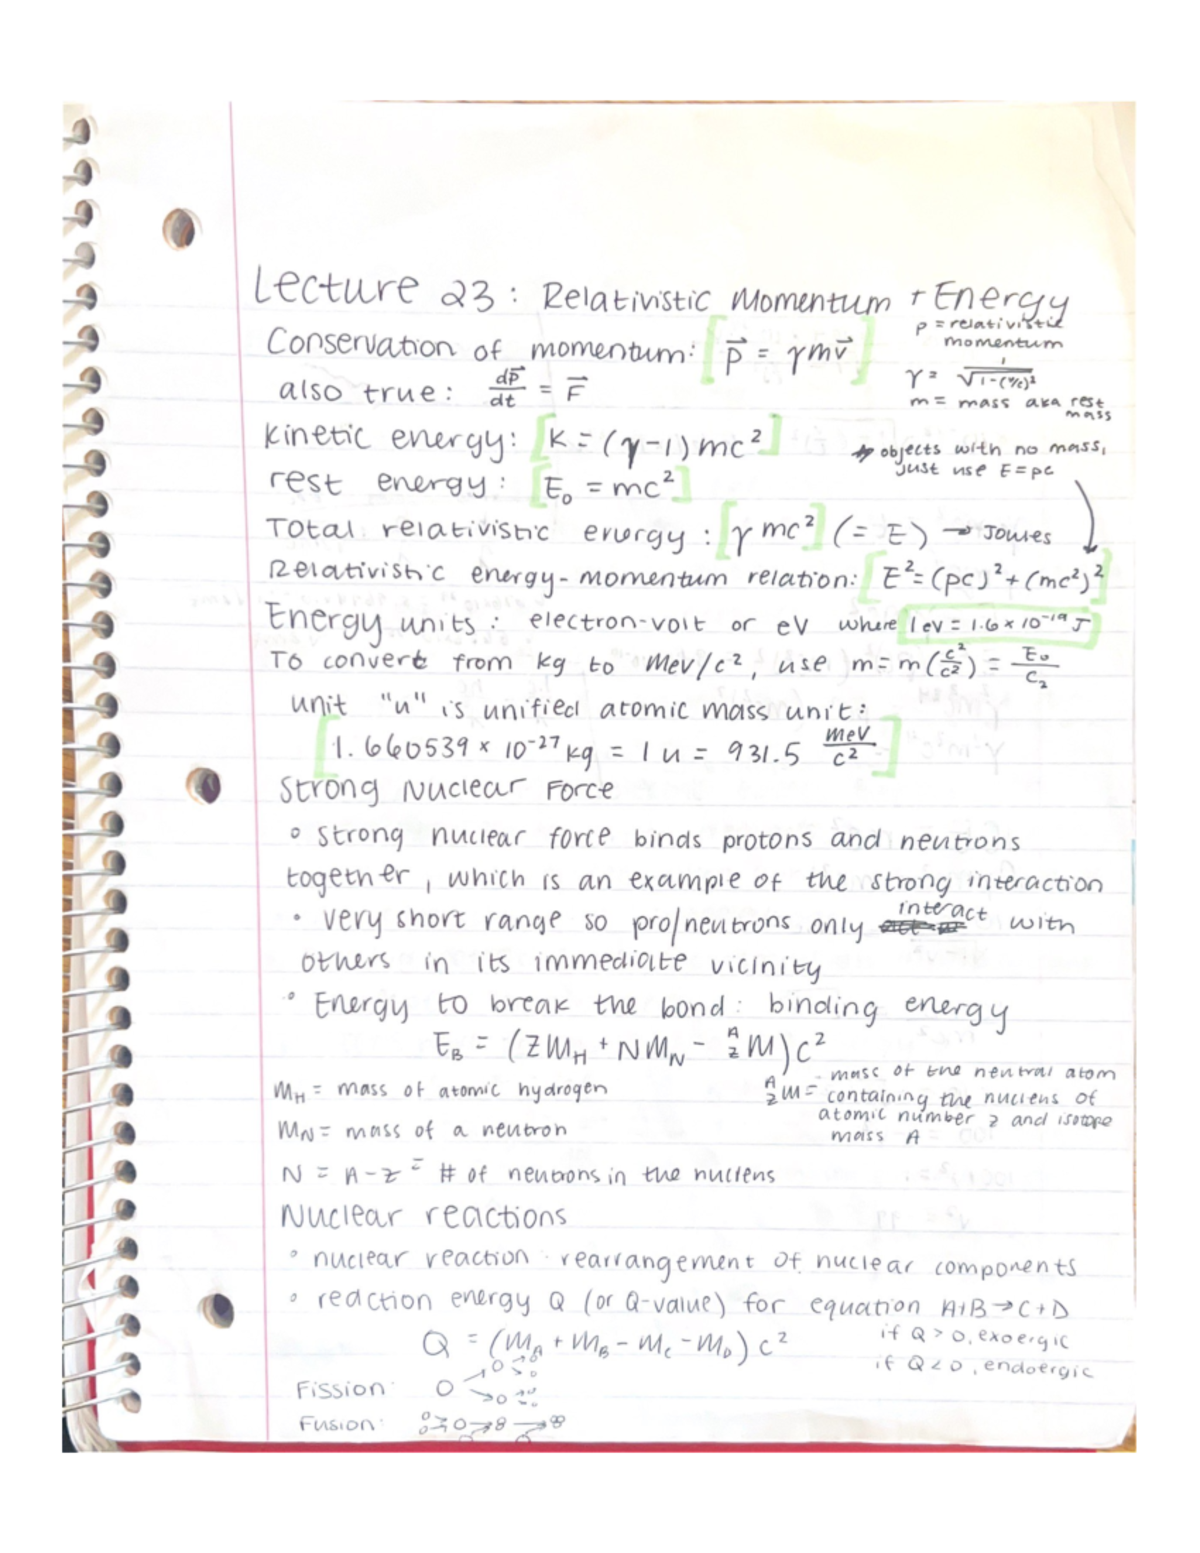 Lecture 23: Relativistic Momentum + Energy
Conservation of momentum: [p⃗ = γmv⃗]
p = relativistic momentum
also true: dp⃗/dt = F⃗
γ = 1/√1-(v/c)²
m = mass aka rest mass
Kinetic energy: [K = (γ-1)mc²]
objects with no mass, just use E=pc
rest energy: [E₀ = mc²]
Total relativistic energy: [γmc²] (= E) → Joules
Relativistic energy-momentum relation: [E² = (pc)² + (mc²)²]
Energy units: electron-volt or eV where 1 eV = 1.6 × 10⁻¹⁹ J
To convert from kg to MeV/c², use m = m(c²/c²) = E₀/c₂
unit "u" is unified atomic mass unit:
[1.660539 × 10⁻²⁷ kg = 1 u = 931.5 MeV/c²]
Strong Nuclear Force
◦ strong nuclear force binds protons and neutrons
together, which is an example of the strong interaction
• very short range so pro/neutrons only interact with
others in its immediate vicinity
◦ Energy to break the bond: binding energy
E_B = (ZM_H + NM_N - ᴬ_Z M)c²
M_H = mass of atomic hydrogen
ᴬ_Z M = mass of the neutral atom
containing the nucleus of
atomic number z and isotope
mass A
M_N = mass of a neutron
N = A-Z = # of neutrons in the nucleus
Nuclear reactions
◦ nuclear reaction: rearrangement of nuclear components
◦ reaction energy Q (or Q-value) for equation A+B→C+D
Q = (M_A + M_B - M_C - M_D)c²
if Q > 0, exoergic
if Q < 0, endoergic
Fission:
Fusion: